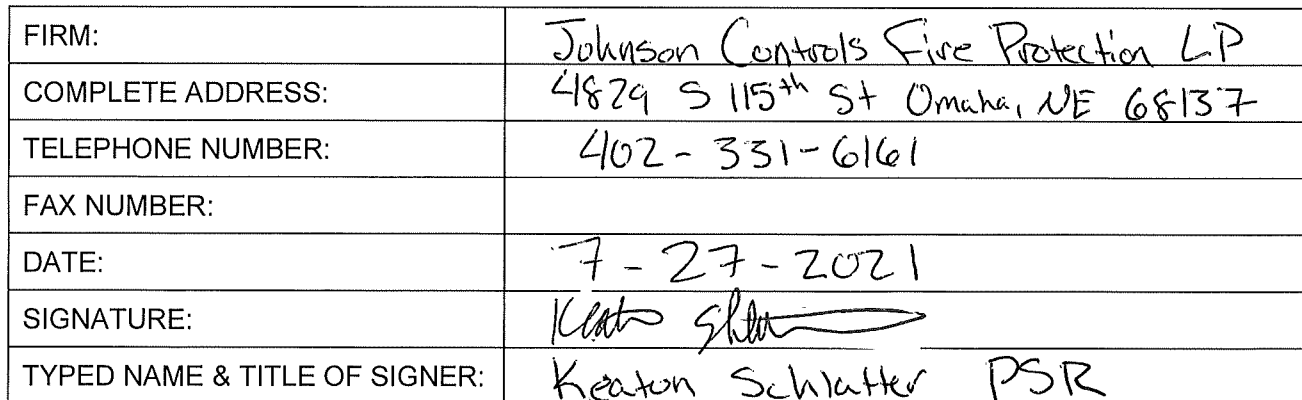 FIRM: Johnson Controls Fire Protection LP
COMPLETE ADDRESS: 4829 S 115th St Omaha, NE 68137
TELEPHONE NUMBER: 402-331-6161
FAX NUMBER:
DATE: 7-27-2021
SIGNATURE: Keaton
TYPED NAME & TITLE OF SIGNER: Keaton Schlatter PSR